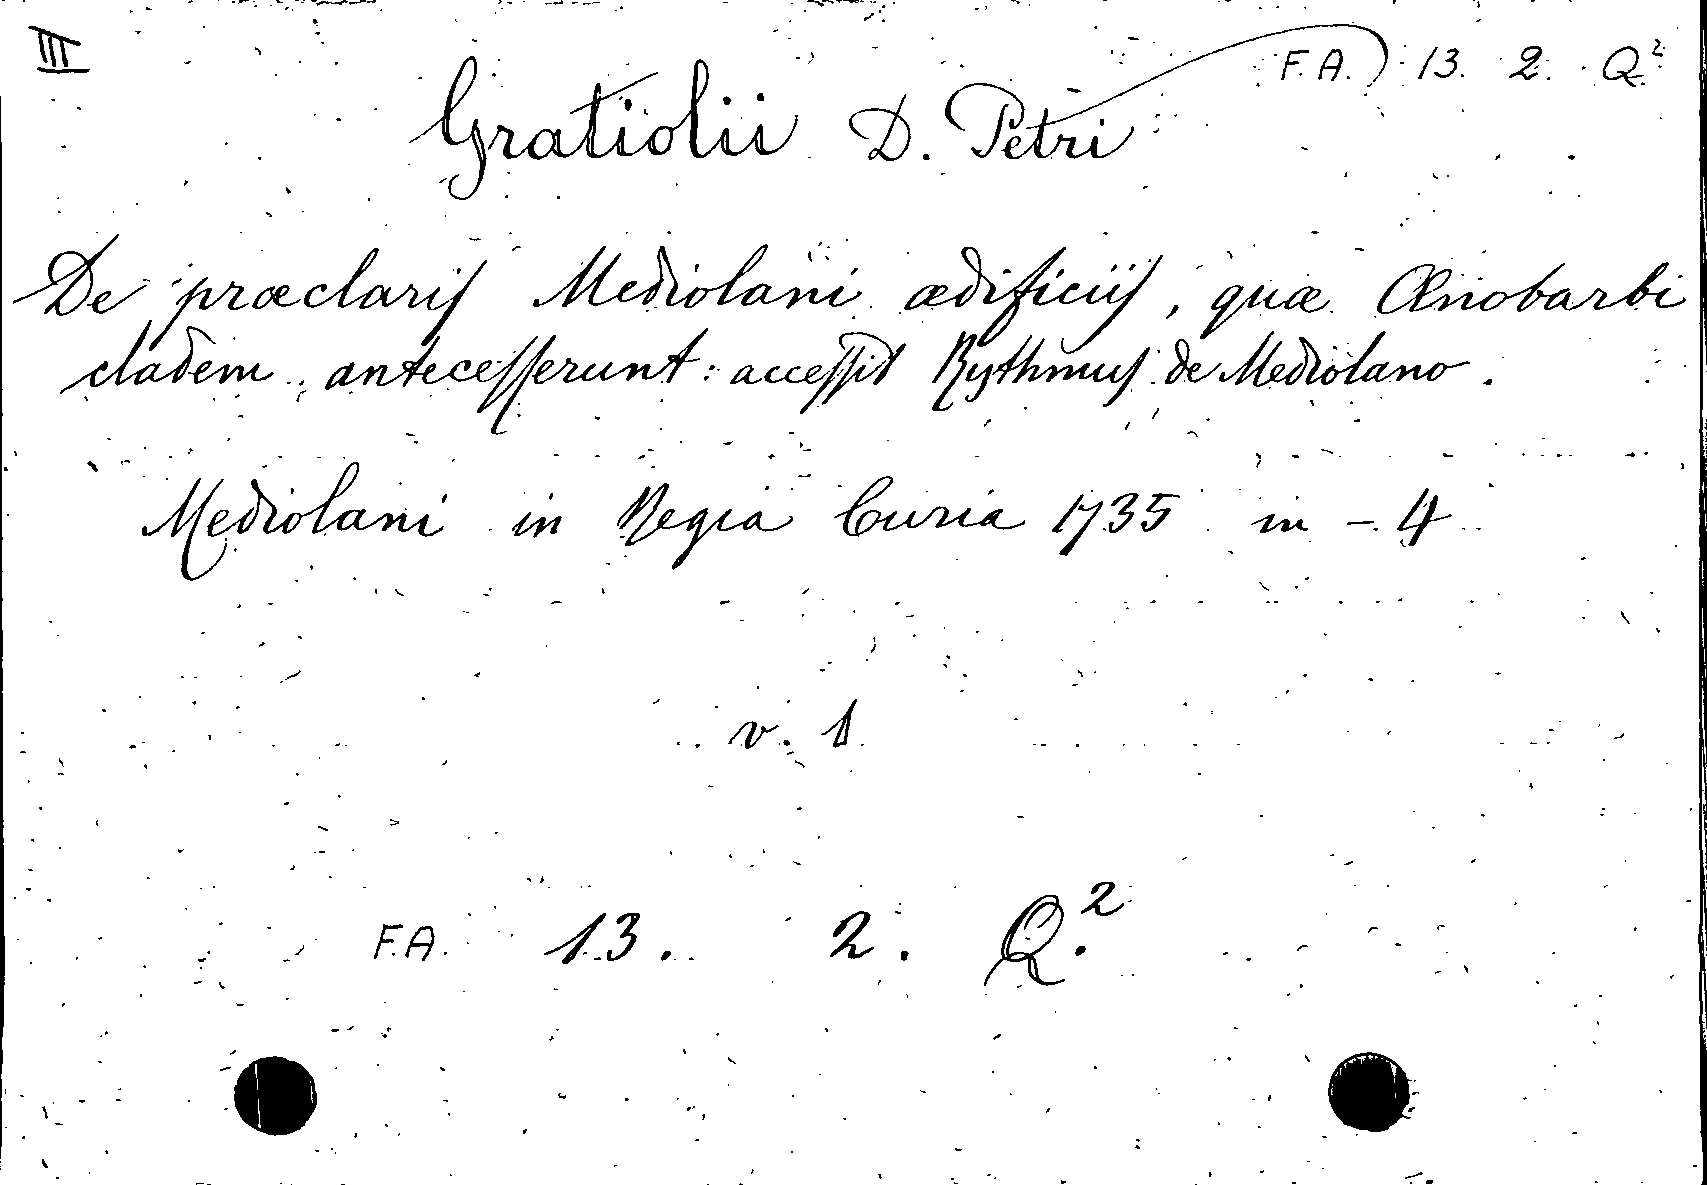 III
F.A. 13. 2. Q.²
Gratiolii D. Petri
De præclaris Mediolani ædificiis, quæ Œnobarbi
cladem antecesserunt: accessit Rythmus de Mediolano.
Mediolani in Regia Curia 1735 in - 4
v. 1
F.A. 13. 2. Q.²